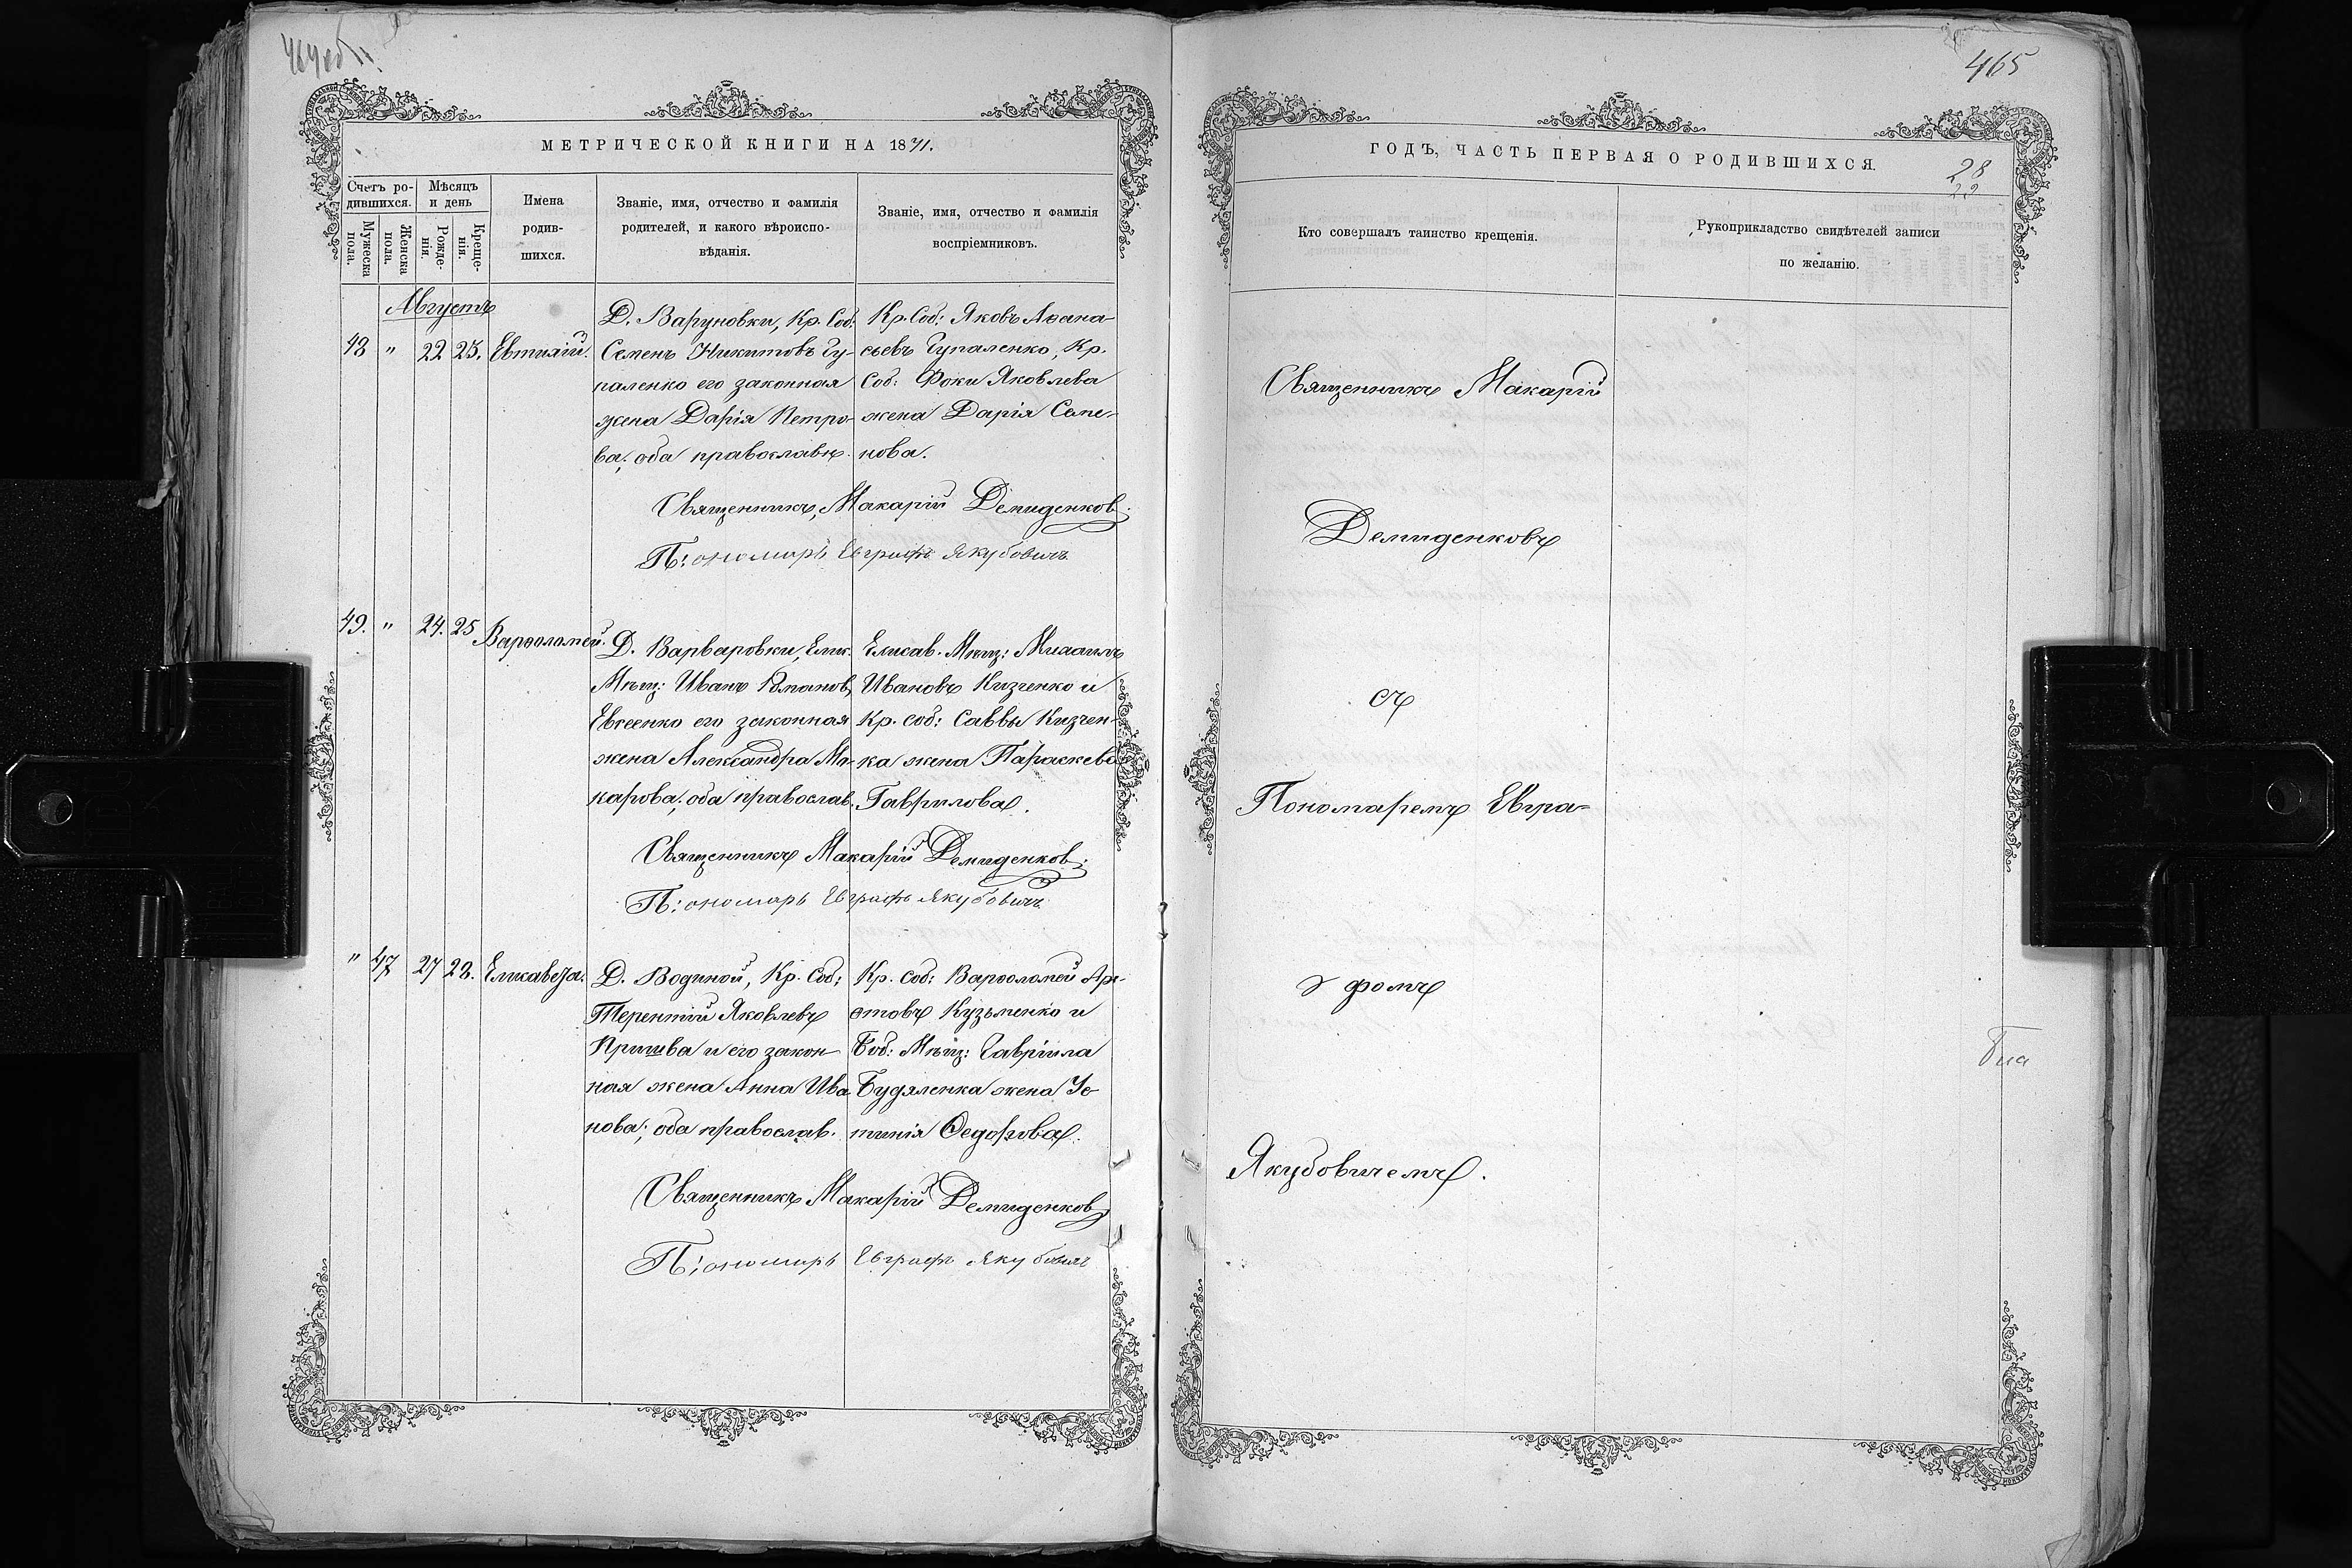 465
МЕТРИЧЕСКОЙ КНИГИ НА 1871.
Счетъ ро-
дившихся.
Мужеска пола.
Женска пола.
Мѣсяцъ
и день
Рожде-
нія.
Креще-
нія.
Имена
родив-
шихся.
Званіе, имя, отчество и фамилія
родителей, и какого вѣроиспо-
вѣданія.
Званіе, имя, отчество и фамилія
воспріемниковъ.
Августъ
48 " 22 23. Евтихій.
Д. Варуновки, Кр. Соб:
Семенъ Никитовъ Чу-
паленко его законная
жена Дарія Петро-
ва; оба православн.
Кр. Соб: Яковъ Аѳана-
сьевъ Чупаленко, Кр.
Соб: Фоки Яковлева
жена Дарія Семе-
нова.
Священникъ, Макарій Демиденков.
П: ономарь Евграфъ Якубовичъ
49. " 24. 25 Варѳоломей.
Д. Варваровки, Елис.
Мѣщ: Иванъ Романов,
Евсеенко его законная
жена Александра Ма-
карова; оба православ.
Елисав. Мѣщ: Михаилъ
Ивановъ Кизченко и
Кр. соб: Саввы Кизчен-
ка жена Параскева
Гаврилова.
Священникъ Макарій Демиденков.
П: ономарь Евграфъ Якубовичъ
" 47 27 28. Елисавета.
Д. Водяной, Кр. Соб:
Терентій Яковлевъ
Пришва и его закон-
ная жена Анна Ива-
нова; оба православ.
Кр. соб: Варѳоломей
Кузьменко и
Боб: Мѣщ: Гавріила
Будяленка жена Ус-
тинія Ѳедорова.
Священникъ Макарій Демиденков
П: ономарь Евграфъ Якубовичъ
ГОДЪ, ЧАСТЬ ПЕРВАЯ О РОДИВШИХСЯ.
28
Кто совершалъ таинство крещенія.
Рукоприкладство свидѣтелей записи
по желанію.
Священникъ Макарій
Демиденковъ
съ
Пономаремъ Евгра-
фомъ
Якубовичемъ.